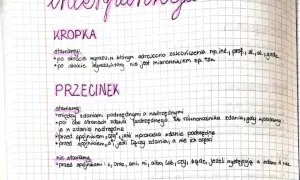 interpunkcja
KROPKA
stawiamy:
• po skrócie wyrazu, w którym odrzucono zakończenie np. inż., prof., ul., godz.
• po skrócie wyrazu, który nie jest mianownikiem np.
PRZECINEK
stawiamy:
• między zdaniami podrzędnymi a nadrzędnymi
• po obu stronach zdania podrzędnego lub równoważnika zdania, gdy
są w zdanie nadrzędne
• przed spójnikiem, gdy wprowadza zdanie podrzędne
• przed spójnikiem „a", jeśli łączy zdania, a nie ich części
nie stawiamy:
• przed spójnikami: i, oraz, ani, ni, albo, lub, czy, bądź, jeżeli występują